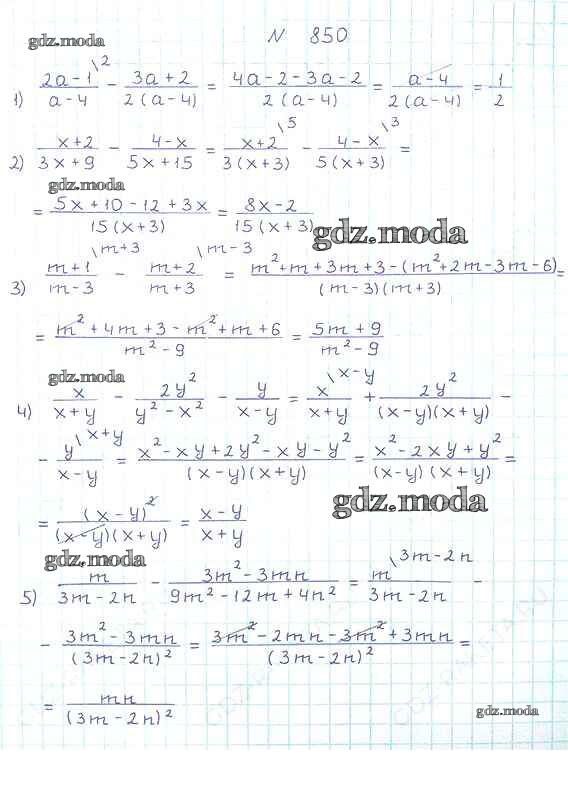 gdz.moda
N 850
1) \frac{2a-1^{\backslash 2}}{a-4} - \frac{3a+2}{2(a-4)} = \frac{4a-2-3a-2}{2(a-4)} = \frac{a-4}{2(a-4)} = \frac{1}{2}
2) \frac{x+2}{3x+9} - \frac{4-x}{5x+15} = \frac{x+2^{\backslash 5}}{3(x+3)} - \frac{4-x^{\backslash 3}}{5(x+3)} =
gdz.moda
= \frac{5x+10-12+3x}{15(x+3)} = \frac{8x-2}{15(x+3)}
gdz.moda
3) \frac{m+1^{\backslash m+3}}{m-3} - \frac{m+2^{\backslash m-3}}{m+3} = \frac{m^2+m+3m+3-(m^2+2m-3m-6)}{(m-3)(m+3)} =
= \frac{m^2+4m+3-m^2+m+6}{m^2-9} = \frac{5m+9}{m^2-9}
gdz.moda
4) \frac{x}{x+y} - \frac{2y^2}{y^2-x^2} - \frac{y}{x-y} = \frac{x^{\backslash x-y}}{x+y} + \frac{2y^2}{(x-y)(x+y)} -
- \frac{y^{\backslash x+y}}{x-y} = \frac{x^2-xy+2y^2-xy-y^2}{(x-y)(x+y)} = \frac{x^2-2xy+y^2}{(x-y)(x+y)} =
gdz.moda
= \frac{(x-y)^2}{(x-y)(x+y)} = \frac{x-y}{x+y}
gdz.moda
5) \frac{m}{3m-2n} - \frac{3m^2-3mn}{9m^2-12m+4n^2} = \frac{m^{\backslash 3m-2n}}{3m-2n} -
- \frac{3m^2-3mn}{(3m-2n)^2} = \frac{3m^2-2mn-3m^2+3mn}{(3m-2n)^2} =
= \frac{mn}{(3m-2n)^2}
gdz.moda